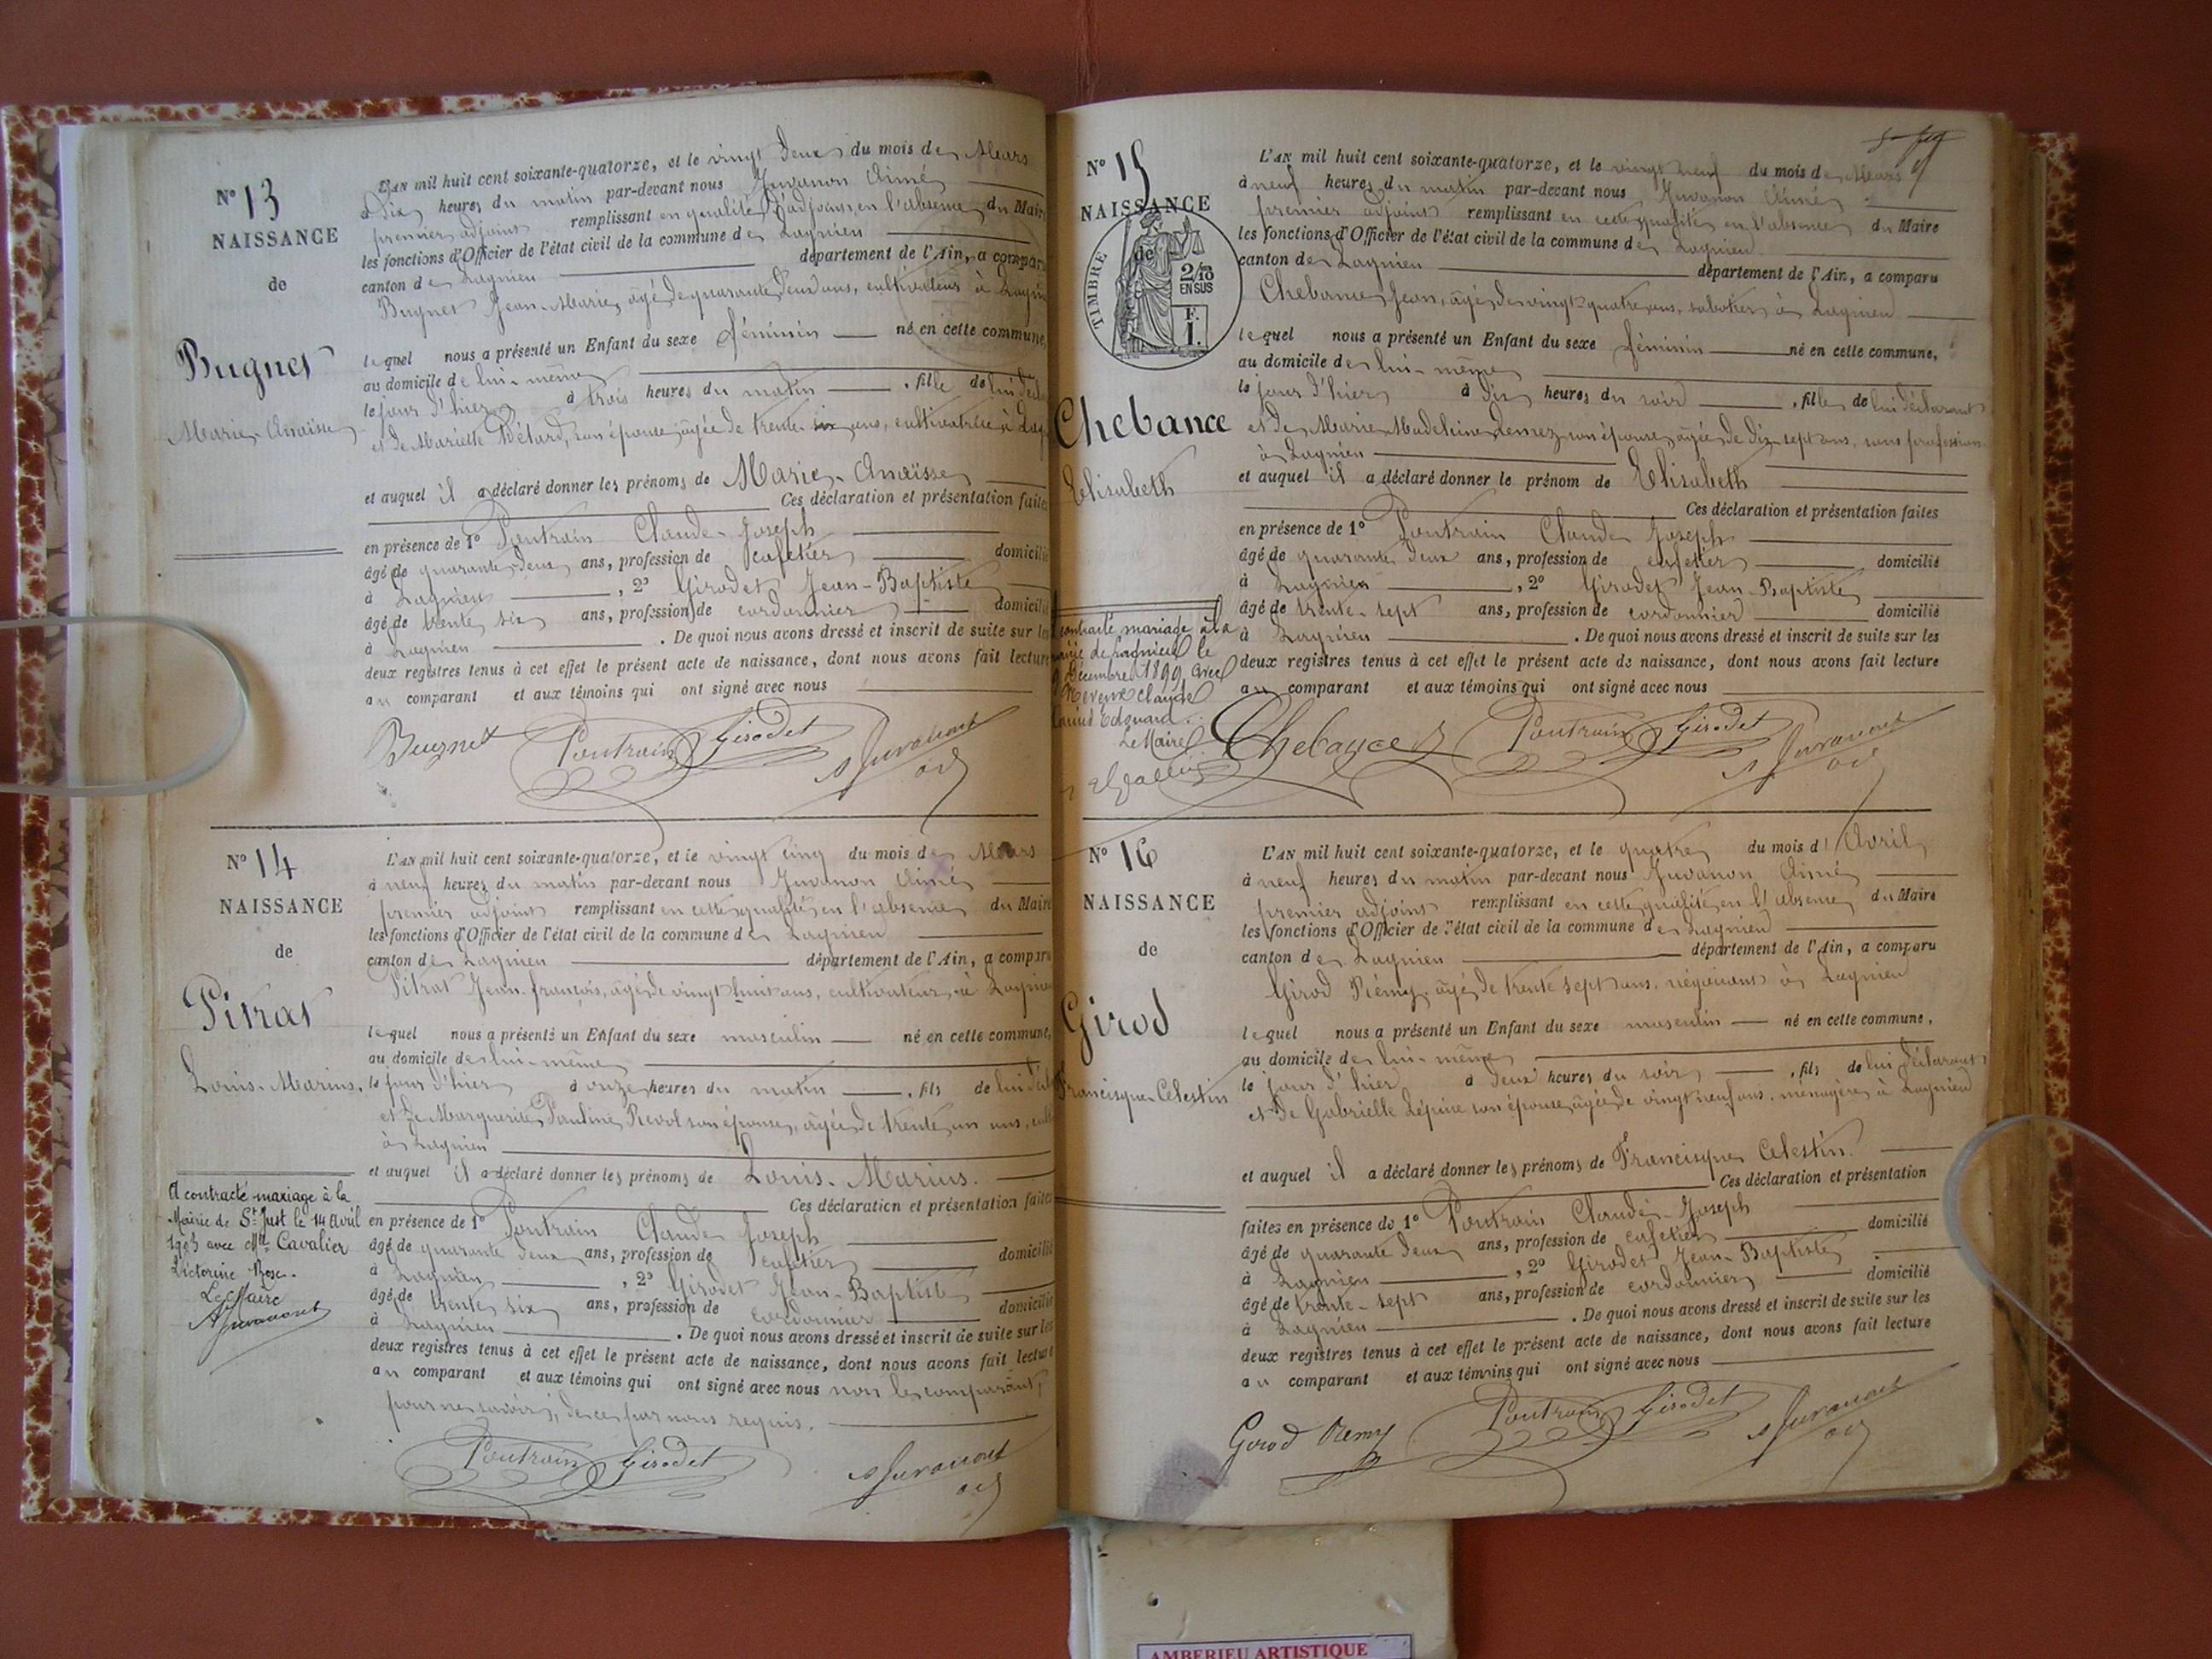 N° 13
NAISSANCE
de
Bugnet
Marie-Anaïsse
L'AN mil huit cent soixante-quatorze, et le vingt deux du mois de Mars
à dix heures du matin par-devant nous Juvanon Aimé
premier adjoint remplissant en qualité d'adjoint, en l'absence du Maire
les fonctions d'Officier de l'état civil de la commune de Lagnieu
canton de Lagnieu département de l'Ain, a comparu
Bugnet Jean-Marie, âgé de quarante deux ans, cultivateur à Lagnieu
lequel nous a présenté un Enfant du sexe féminin né en cette commune,
au domicile de lui-même
le jour d'hier à trois heures du matin, fille de lui décl
et de Mariette Bétard, son épouse, âgée de trente-six ans, cultivatrice à Lag
et auquel il a déclaré donner les prénoms de Marie-Anaïsse
Ces déclaration et présentation faites
en présence de 1° Poutrain Claude-Joseph
âgé de quarante-deux ans, profession de cafetier domicilié
à Lagnieu, 2° Girodet Jean-Baptiste
âgé de trente six ans, profession de cordonnier domicilié
à Lagnieu. De quoi nous avons dressé et inscrit de suite sur les
deux registres tenus à cet effet le présent acte de naissance, dont nous avons fait lecture
au comparant et aux témoins qui ont signé avec nous
Bugnet Poutrain Girodet A Juvanon
adj
N° 14
NAISSANCE
de
Pitrat
Louis-Marius.
A contracté mariage à la
Mairie de St Just le 14 Avril
1903 avec Mlle Cavalier
Victorine Rose.
Le Maire
A Juvanon
L'AN mil huit cent soixante-quatorze, et le vingt cinq du mois de Mars
à neuf heures du matin par-devant nous Juvanon Aimé
premier adjoint remplissant en cette qualité en l'absence du Maire
les fonctions d'Officier de l'état civil de la commune de Lagnieu
canton de Lagnieu département de l'Ain, a comparu
Pitrat Jean-françois, âgé de vingt huit ans, cultivateur, à Lagnieu
lequel nous a présenté un Enfant du sexe masculin né en cette commune,
au domicile de lui-même
le jour d'hier à onze heures du matin, fils de lui décl
et de Marguerite Pauline Revol son épouse, âgée de trente un ans, cult
à Lagnieu
et auquel il a déclaré donner les prénoms de Louis-Marius.
Ces déclaration et présentation faites
en présence de 1° Poutrain Claude Joseph
âgé de quarante deux ans, profession de cafetier domicilié
à Lagnieu, 2° Girodet Jean-Baptiste
âgé de trente six ans, profession de cordonnier domicilié
à Lagnieu. De quoi nous avons dressé et inscrit de suite sur les
deux registres tenus à cet effet le présent acte de naissance, dont nous avons fait lecture
au comparant et aux témoins qui ont signé avec nous non le comparant,
pour ne savoir, de ce par nous requis.
Poutrain Girodet A Juvanon
adj
N° 15
NAISSANCE
de
TIMBRE
2/10
EN SUS
F.
1.
Chebance
Elisabeth
contracté mariage à la
mairie de Lagnieu le
Décembre 1899, avec
Claude
Edouard.
Le Maire
L'AN mil huit cent soixante-quatorze, et le vingt neuf du mois de Mars
à neuf heures du matin par-devant nous Juvanon Aimé
premier adjoint remplissant en cette qualité en l'absence du Maire
les fonctions d'Officier de l'état civil de la commune de Lagnieu
canton de Lagnieu département de l'Ain, a comparu
Chebance Jean, âgé de vingt-quatre ans, sabotier à Lagnieu
lequel nous a présenté un Enfant du sexe féminin né en cette commune,
au domicile de lui-même
le jour d'hier à dix heures du soir, fille de lui déclarant
et de Marie Madeleine son épouse, âgée de dix sept ans, sans profession
à Lagnieu
et auquel il a déclaré donner le prénom de Elisabeth
Ces déclaration et présentation faites
en présence de 1° Poutrain Claude Joseph
âgé de quarante deux ans, profession de cafetier domicilié
à Lagnieu, 2° Girodet Jean-Baptiste
âgé de trente-sept ans, profession de cordonnier domicilié
à Lagnieu. De quoi nous avons dressé et inscrit de suite sur les
deux registres tenus à cet effet le présent acte de naissance, dont nous avons fait lecture
au comparant et aux témoins qui ont signé avec nous
Chebance J Poutrain Girodet A Juvanon
adj
N° 16
NAISSANCE
de
Girod
Francisque Celestin
L'AN mil huit cent soixante-quatorze, et le quatre du mois d'Avril
à neuf heures du matin par-devant nous Juvanon Aimé
premier adjoint remplissant en cette qualité, en l'absence du Maire
les fonctions d'Officier de l'état civil de la commune de Lagnieu
canton de Lagnieu département de l'Ain, a comparu
Girod Rémy, âgé de trente sept ans, négociant à Lagnieu
lequel nous a présenté un Enfant du sexe masculin né en cette commune,
au domicile de lui-même
le jour d'hier à deux heures du soir, fils de lui déclarant
et de Gabrielle Lépine son épouse, âgée de vingt neuf ans, ménagère à Lagnieu
et auquel il a déclaré donner les prénoms de Francisque Celestin.
Ces déclaration et présentation
faites en présence de 1° Poutrain Claude-Joseph
âgé de quarante deux ans, profession de cafetier domicilié
à Lagnieu, 2° Girodet Jean-Baptiste
âgé de trente-sept ans, profession de cordonnier domicilié
à Lagnieu. De quoi nous avons dressé et inscrit de suite sur les
deux registres tenus à cet effet le présent acte de naissance, dont nous avons fait lecture
au comparant et aux témoins qui ont signé avec nous
Girod Remy Poutrain Girodet A Juvanon
adj
AMBERIEU ARTISTIQUE